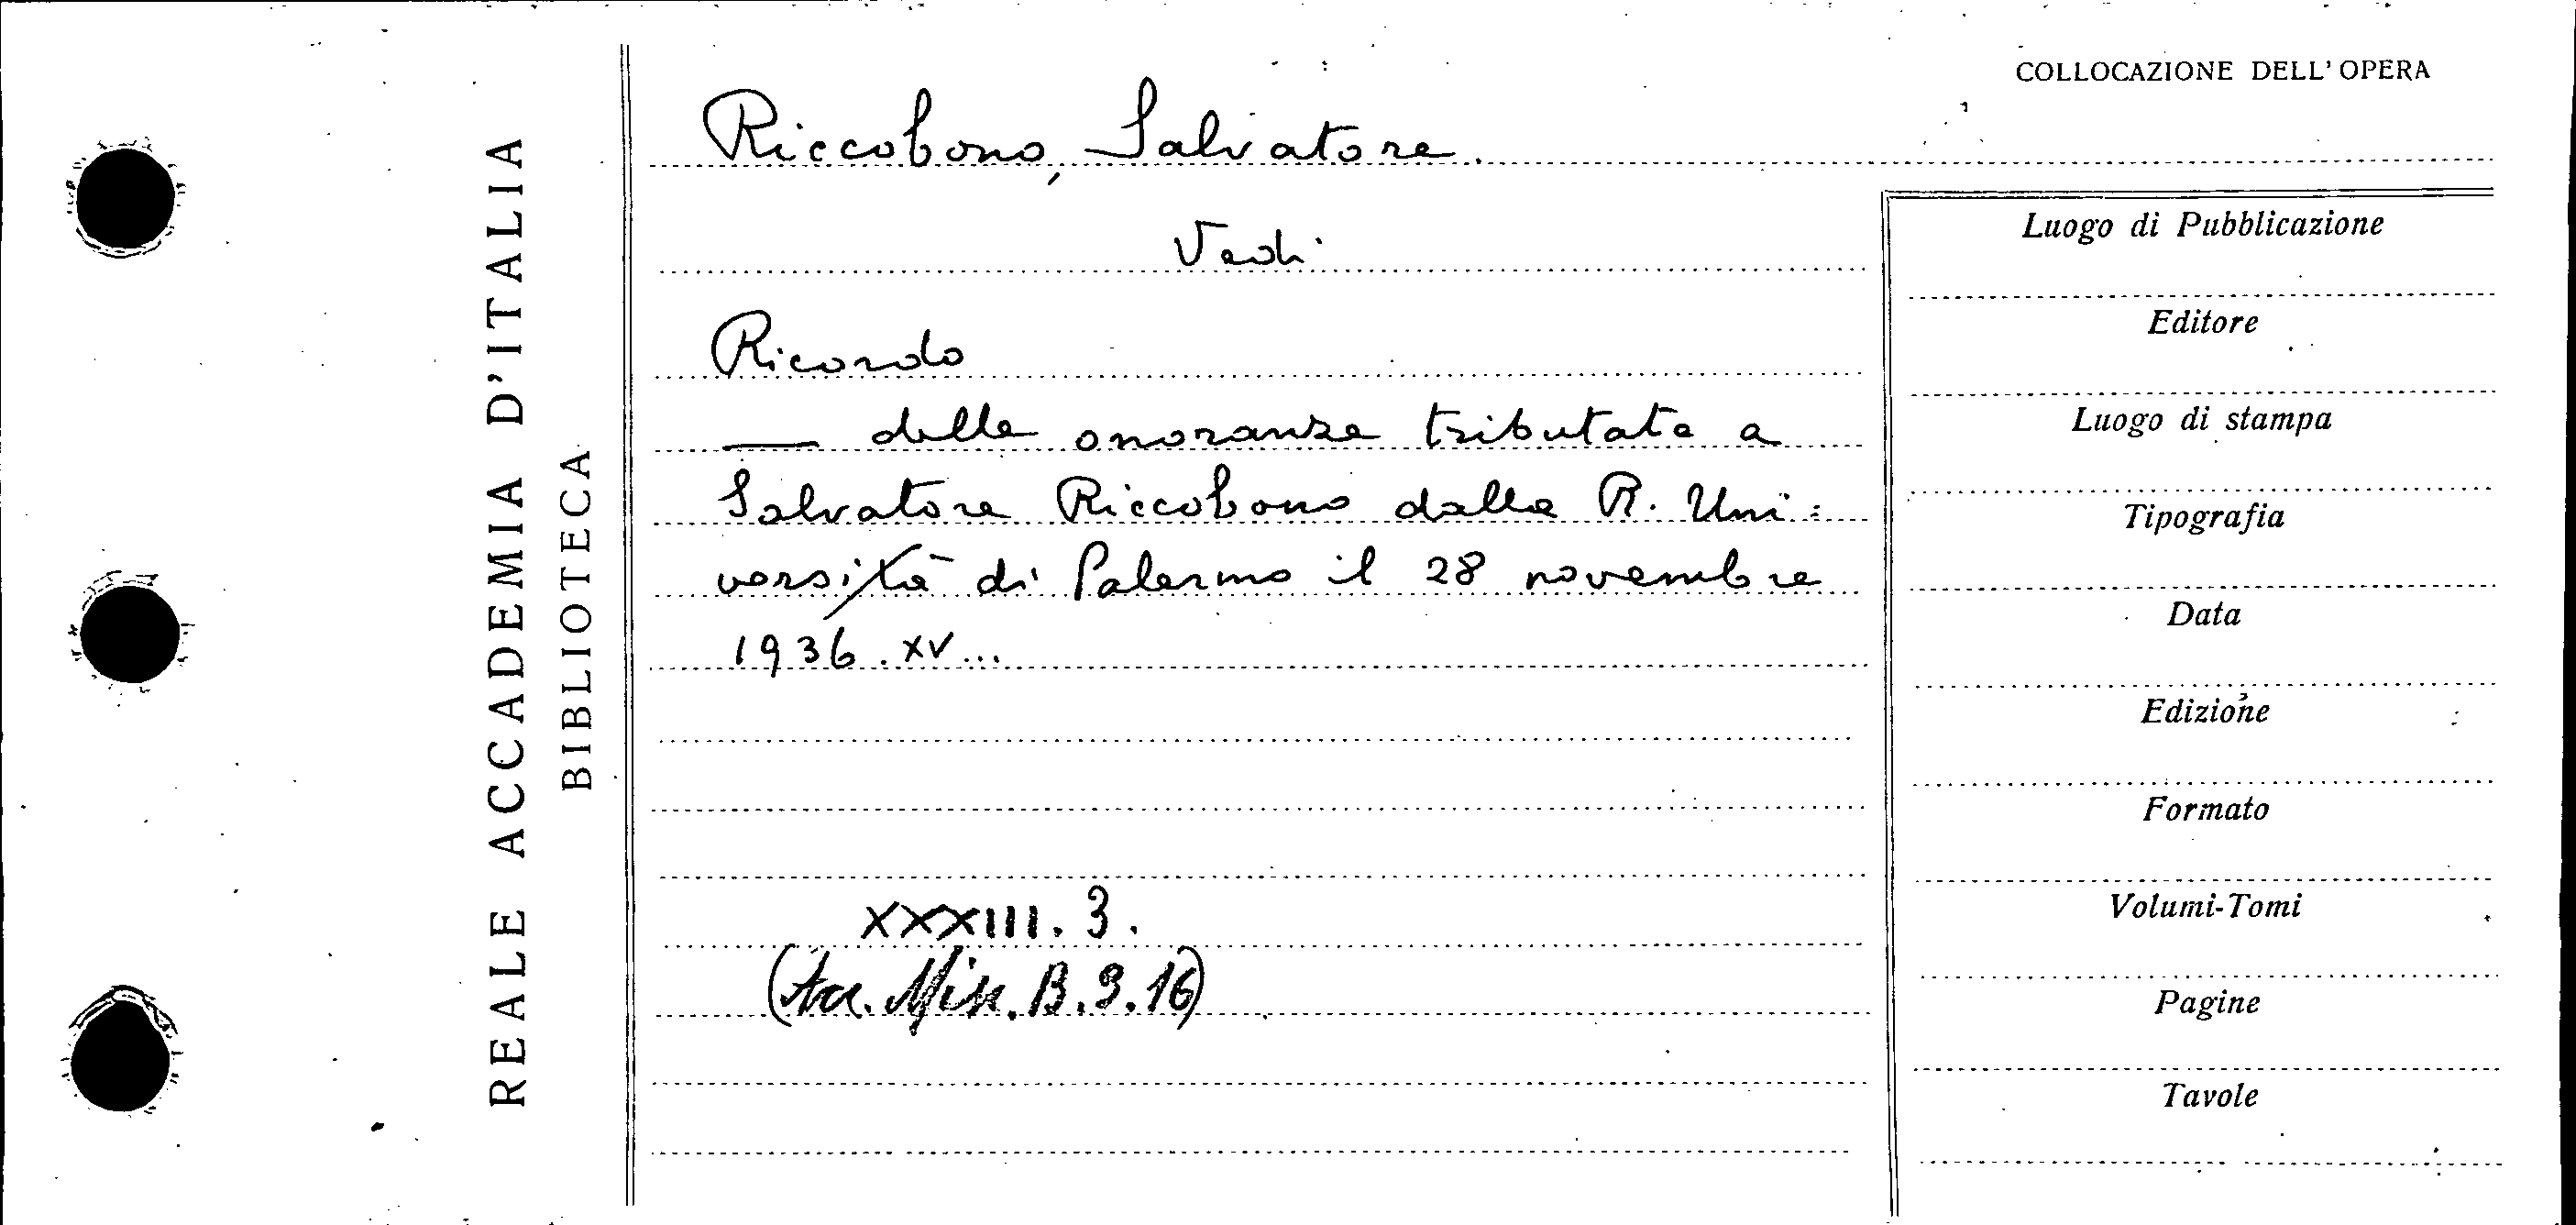 REALE ACCADEMIA D'ITALIA
BIBLIOTECA
COLLOCAZIONE DELL'OPERA
Riccobono, Salvatore.
Vedi
Ricordo
— delle onoranze tributate a
Salvatore Riccobono dalla R. Uni=
versità di Palermo il 28 novembre
1936. XV...
XXXIII. 3.
(Acc. Misc. B. 9. 16)
Luogo di Pubblicazione
Editore
Luogo di stampa
Tipografia
Data
Edizione
Formato
Volumi-Tomi
Pagine
Tavole